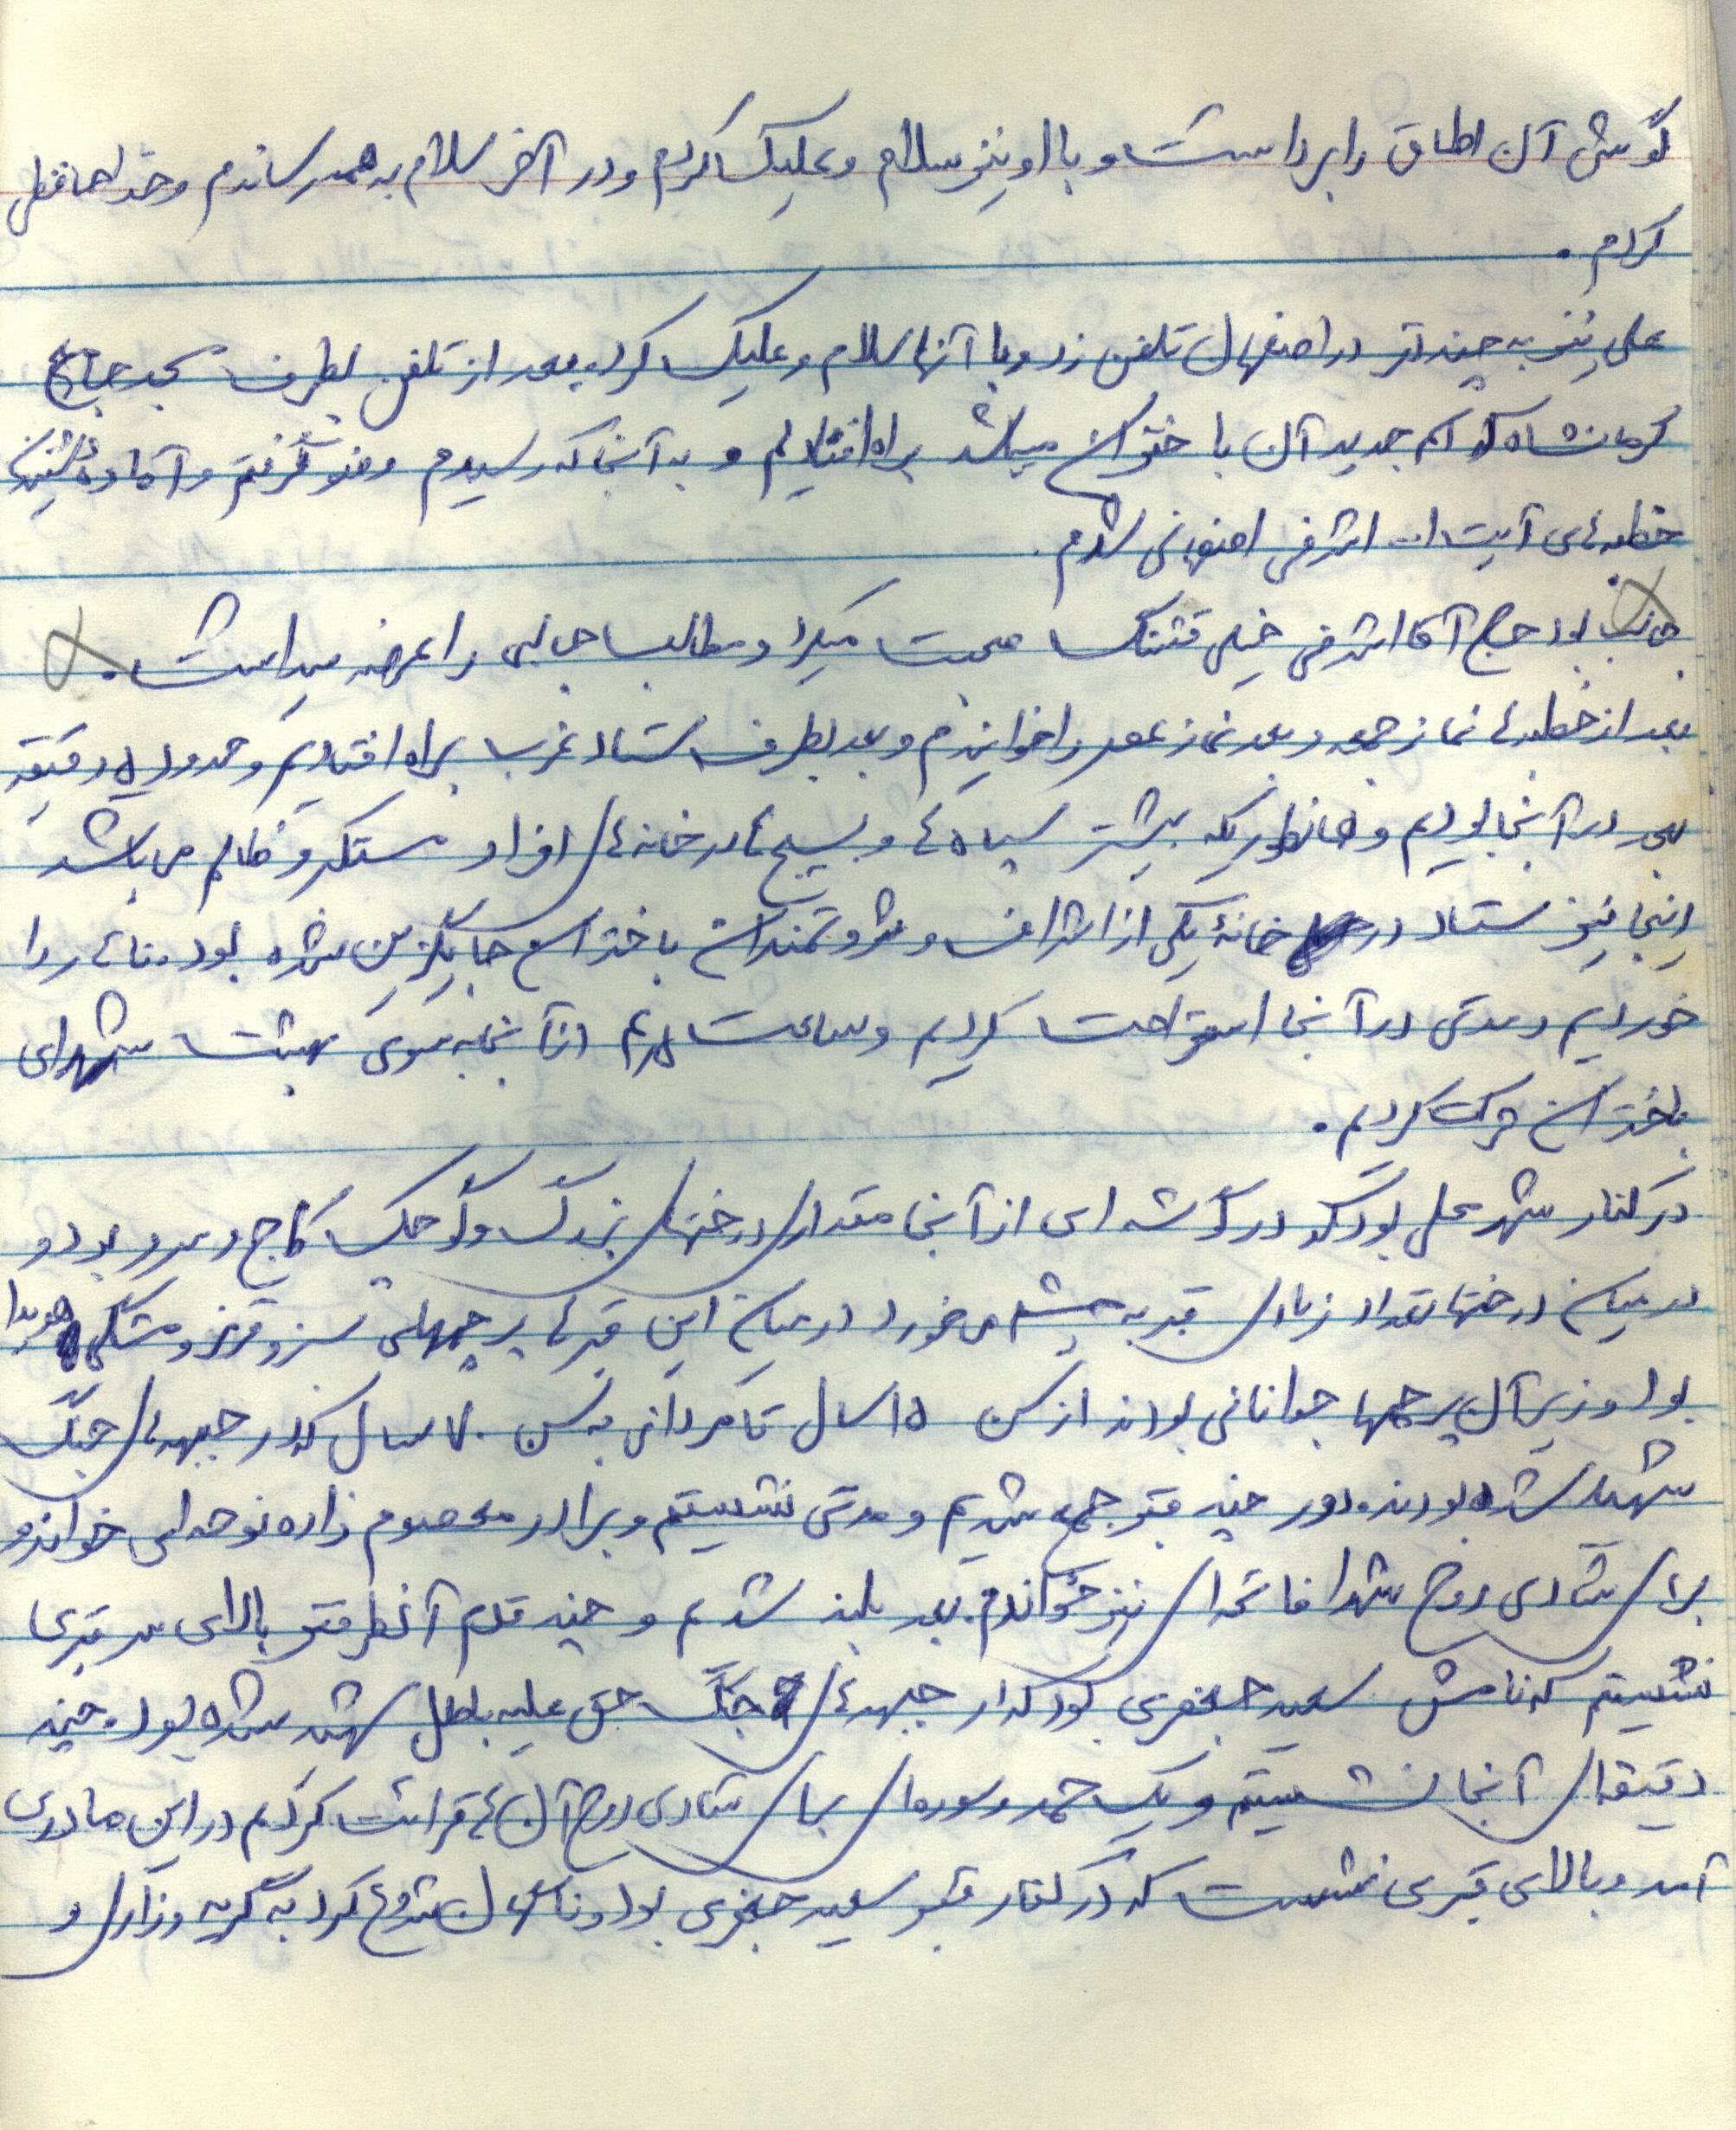 گوشی آن اطاق را برداشت و با او نیز سلام و علیک کردم و در آخر سلام به همه رساندم و خداحافظی
کردم.
علی نیز به چند نفر در اصفهان تلفن زد و با آنها سلام و علیک کرد. بعد از تلفن بطرف مسجد جامع
کرمانشاه که اسم جدید آن باختران میباشد براه افتادیم و به آنجا که رسیدم وضو گرفتم و آماده شنیدن
خطبه‌های آیت ا... اشرفی اصفهانی شدم.
جالب بود حاج آقا اشرفی خیلی قشنگ صحبت میکرد و مطالب جالبی را عرضه میداشت.
بعد از خطبه‌ها نماز جمعه و بعد نماز عصر را خواندیم و بعد بطرف ستاد غرب براه افتادیم و حدود ۱۵ دقیقه
بعد در آنجا بودیم و همانطوریکه بیشتر سپاه‌ها و بسیج‌ها در خانه‌های افراد مستکبر و ظالم می باشد
اینجا نیز ستاد در خانهٔ یکی از اشراف و ثروتمندان باختران جایگزین شده بود. ناهار را
خوردیم و مدتی در آنجا استراحت کردیم و ساعت از آنجا به سوی بهشت شهدای
باختران حرکت کردیم.
در کنار شهر محلی بود که در گوشه ای از آنجا مقداری درختهای بزرگ و کوچک کاج و سرو بود و
در میان درختها تعداد زیادی قبر به چشم می خورد در میان این قبرها پرچمهای سبز و قرمز و مشکی هویدا
بود و زیر آن پرچمها جوانانی بودند از سن ۱۵ سال تا مردانی به سن ۷۰ سال که در جبهه‌های جنگ
شهید شده بودند. دور چند قبر جمع شدیم و مدتی نشستیم و برادر معصوم زاده نوحه‌ای خواند و
برای شادی روح شهدا فاتحه‌ای نیز خواندم. بعد بلند شدیم و چند قدم آنطرفتر بالای سر قبری
نشستیم که نامش سعید جعفری بود که در جبهه‌های جنگ حق علیه باطل شهید شده بود. چند
دقیقه‌ای آنجا نشستیم و یک حمد و سوره‌ای برای شادی روح آن‌ها قرائت کردم در این مادری
آمد و بالای قبری نشست که در کنار قبر سعید جعفری بود و ناگهان شروع کرد به گریه و زاری و